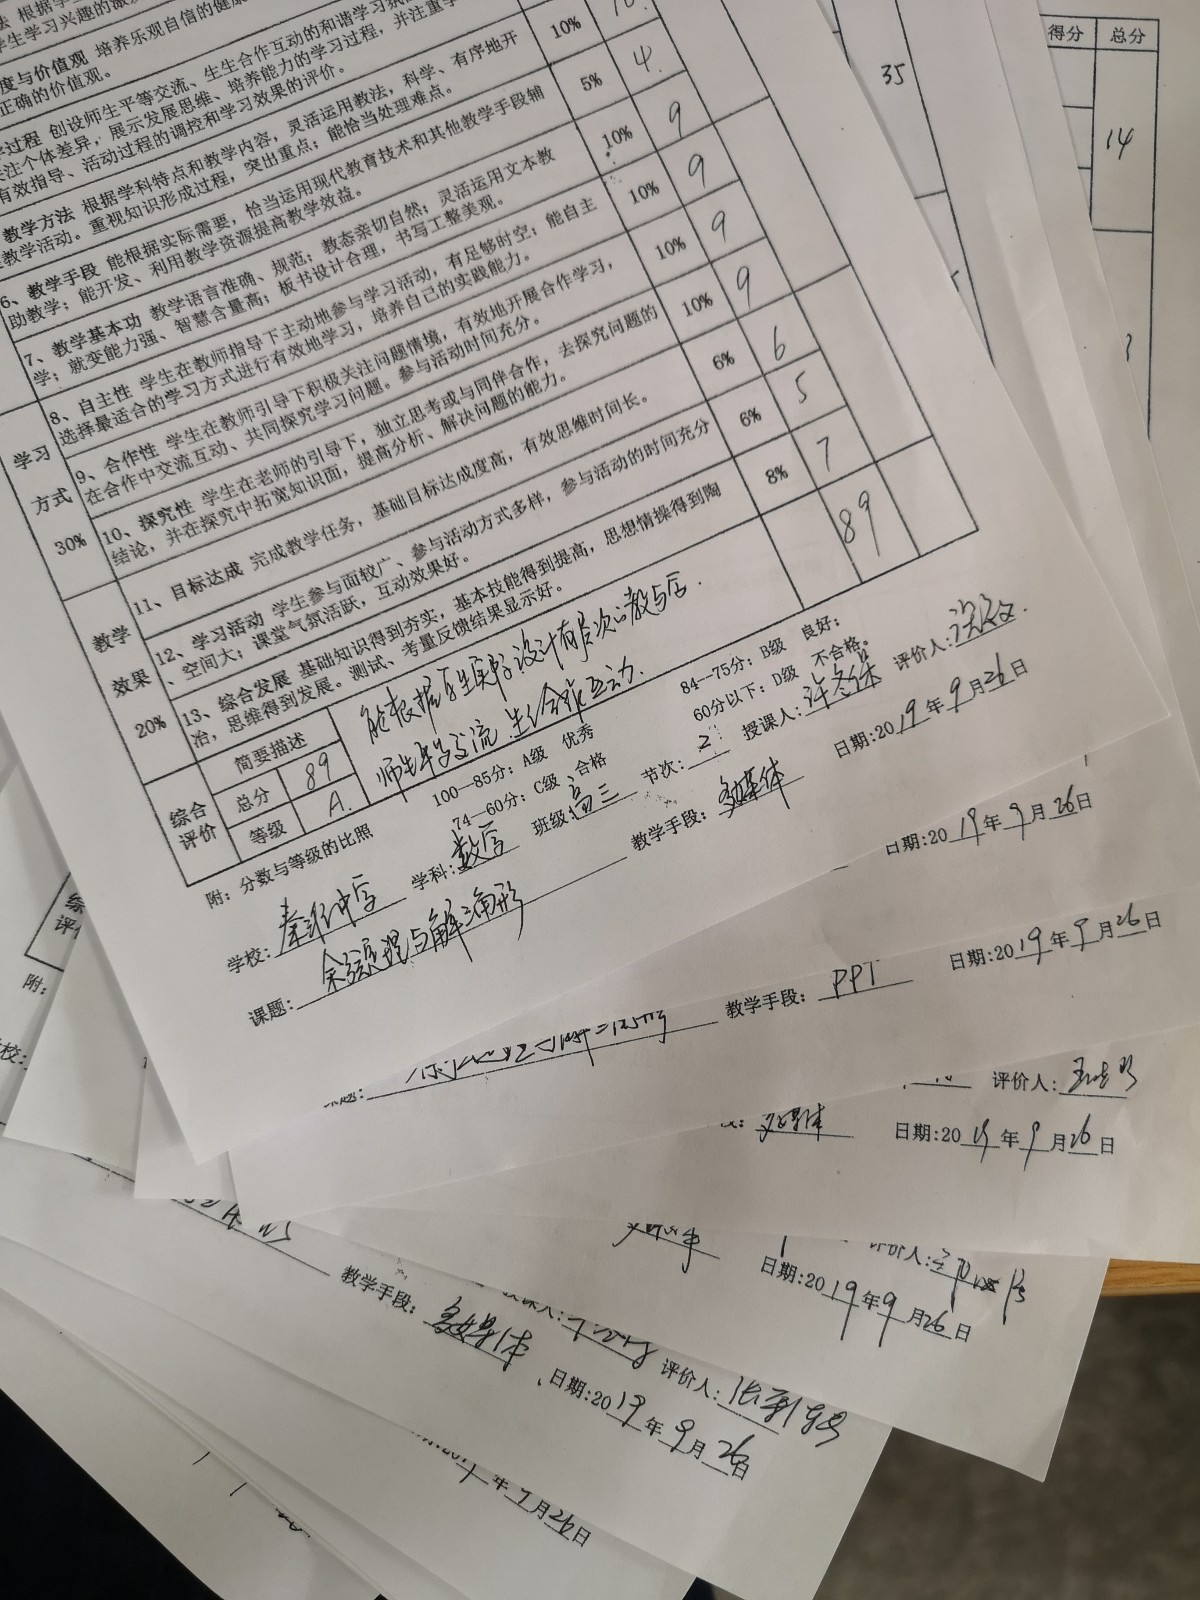 学生学习兴趣的激发
度与价值观 培养乐观自信的健康
正确的价值观。
过程 创设师生平等交流、生生合作互动的和谐学习氛
注个体差异，展示发展思维、培养能力的学习过程，并注重学
有效指导、活动过程的调控和学习效果的评价。
10%
10.
教学方法 根据学科特点和教学内容，灵活运用教法，科学、有序地开
教学活动。重视知识形成过程，突出重点；能恰当处理难点。
5%
4.
6、教学手段 能根据实际需要，恰当运用现代教育技术和其他教学手段辅
助教学；能开发、利用教学资源提高教学效益。
10%
9
7、教学基本功 教学语言准确、规范；教态亲切自然；灵活运用文本教
学；就变能力强、智慧含量高；板书设计合理，书写工整美观。
10%
9
学习
方式
30%
8、自主性 学生在教师指导下主动地参与学习活动，有足够时空；能自主
选择最适合的学习方式进行有效地学习，培养自己的实践能力。
10%
9
9、合作性 学生在教师引导下积极关注问题情境，有效地开展合作学习，
在合作中交流互动、共同探究学习问题。参与活动时间充分。
10%
9
10、探究性 学生在老师的引导下，独立思考或与同伴合作，去探究问题的
结论，并在探究中拓宽知识面，提高分析、解决问题的能力。
6%
6
教学
效果
20%
11、目标达成 完成教学任务，基础目标达成度高，有效思维时间长。
6%
5
12、学习活动 学生参与面较广、参与活动方式多样，参与活动的时间充分
、空间大；课堂气氛活跃，互动效果好。
8%
7
13、综合发展 基础知识得到夯实，基本技能得到提高，思想情操得到陶
冶，思维得到发展。测试、考量反馈结果显示好。
89
综合
评价
简要描述
总分 89
等级 A.
能根据学生实际设计有层次的教与学.
师生平等交流 生生合作互动.
附：分数与等级的比照
100—85分：A级 优秀
84—75分：B级 良好；
74—60分：C级 合格
60分以下：D级 不合格。
学校：秦淮中学 学科：数学 班级：高三 节次：2 授课人：许冬保 评价人：
课题：余弦定理与解三角形 教学手段：多媒体 日期：2019年9月26日
得分 总分
35
14
日期：2019年9月26日
教学手段：PPT 日期：2019年9月26日
评价人：
多媒体 日期：2019年9月26日
评价人：
日期：2019年9月26日
评价人：
教学手段：多媒体 日期：2019年9月26日
年9月26日